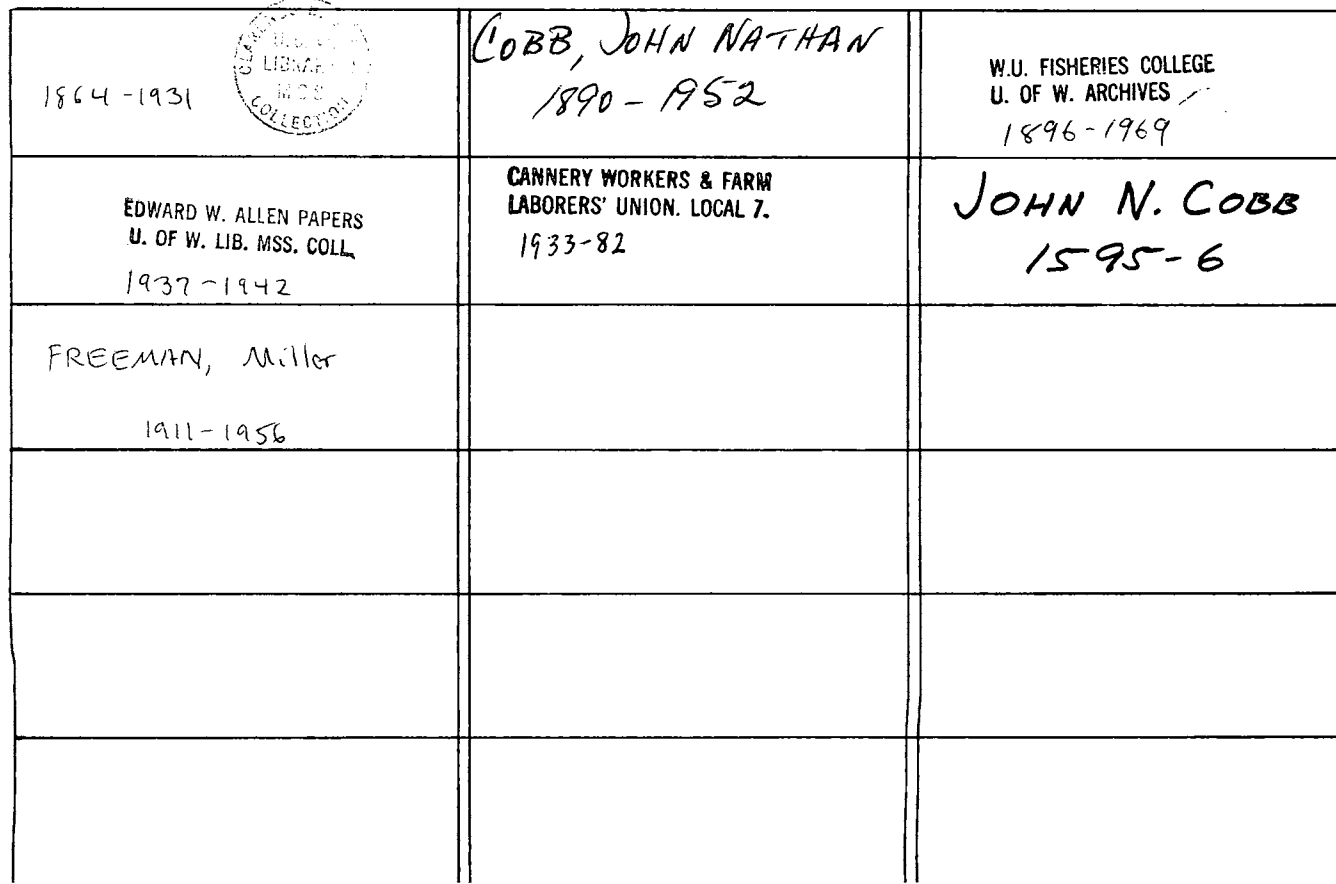 1864-1931
LIBRARY
COLLECTION
COBB, JOHN NATHAN
1890-1952
W.U. FISHERIES COLLEGE
U. OF W. ARCHIVES
1896-1969
EDWARD W. ALLEN PAPERS
U. OF W. LIB. MSS. COLL.
1937-1942
CANNERY WORKERS & FARM
LABORERS' UNION. LOCAL 7.
1933-82
JOHN N. COBB
1595-6
FREEMAN, Miller
1911-1956